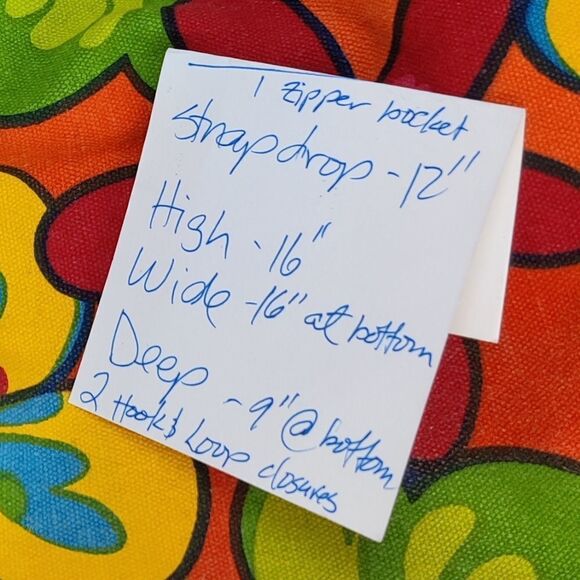 1 zipper pocket
Strap drop - 12"
High - 16"
Wide - 16" at bottom
Deep - 9" @ bottom
2 Hook & Loop closures